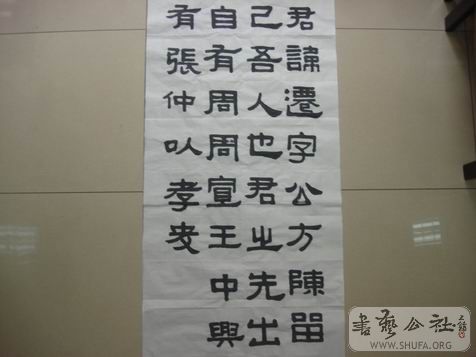 君諱遷字公方陳留
己吾人也君之先出
自有周周宣王中興
有張仲以孝友
書藝公社
WWW.SHUFA.ORG